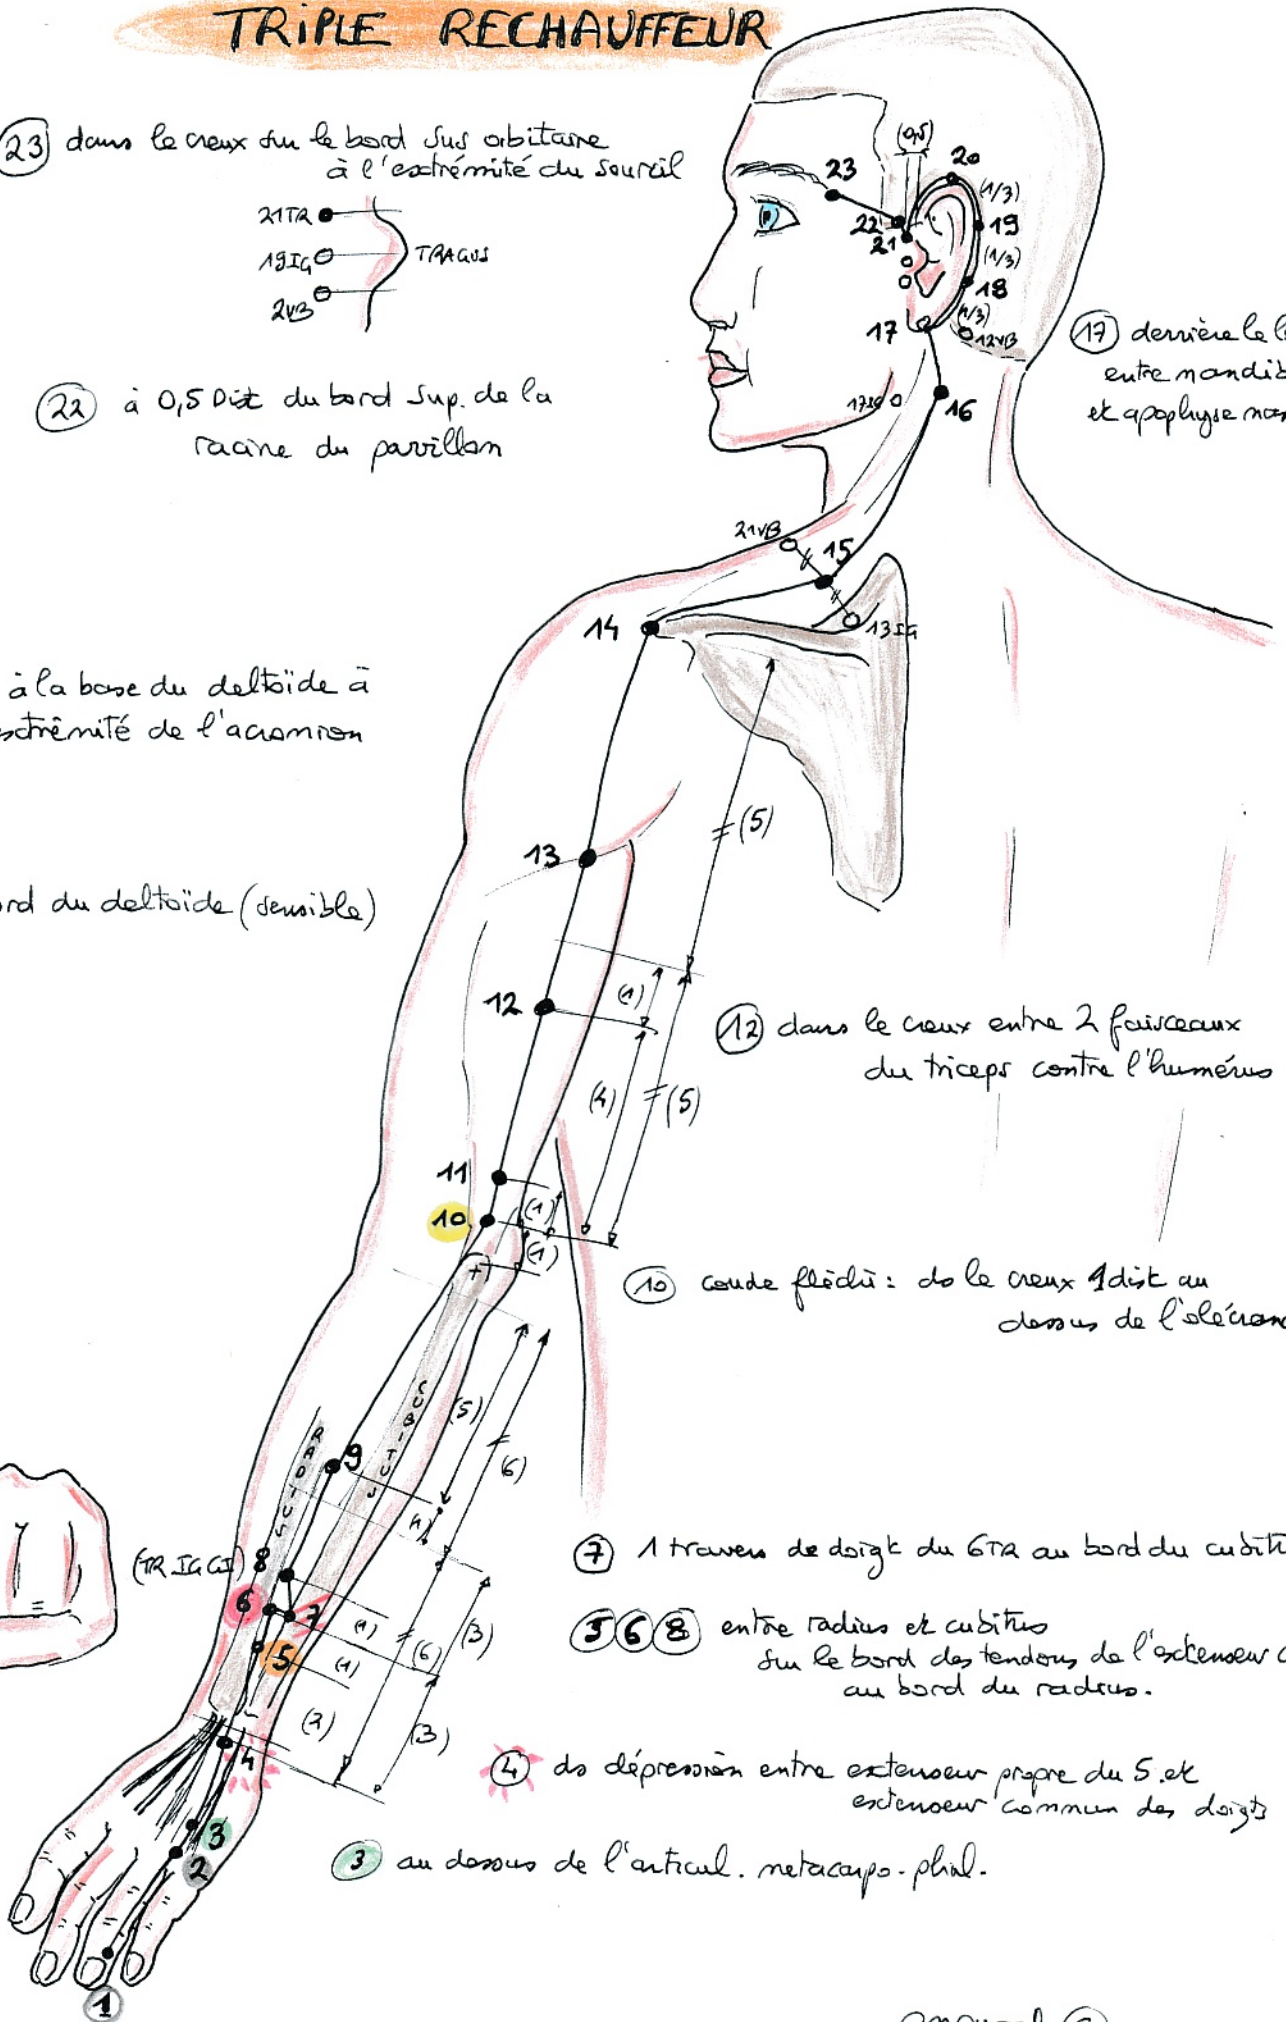 TRIPLE RECHAUFFEUR
23 dans le creux sur le bord sus orbitaire
à l'extrémité du sourcil
21TR
19IG
2VB
TRAGUS
22 à 0,5 Dist du bord sup. de la
racine du pavillon
(0,5)
23
22
21
20
(1/3)
19
(1/3)
18
(1/3)
17
12VB
17IG
16
17 derrière le l
entre mandib
et apophyse mas
21VB
15
13IG
14
à la base du deltoïde à
extrêmité de l'acromion
(5)
13
ord du deltoïde (sensible)
12
(1)
12 dans le creux entre 2 faisceaux
du triceps contre l'humérus
(4)
(5)
11
10
(1)
(1)
10 coude fléchi : ds le creux 1 dist au
dessus de l'olécran
CUBITUS
RADIUS
(5)
(6)
9
(1)
(TR IG GI)
8
6
7
5
(1)
(1)
(2)
(6)
(3)
(3)
7 1 travers de doigt du 6TR au bord du cubit
5 6 8 entre radius et cubitus
sur le bord des tendons de l'extenseur c
au bord du radius.
4
4 ds dépression entre extenseur propre du 5. et
extenseur commun des doigts
3
2
3 au dessus de l'articul. metacarpo-phal.
1